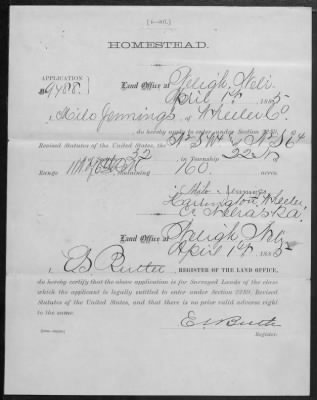 [4—007.]
HOMESTEAD.
APPLICATION
No. 9488.
Land Office at Neligh, Neb.
April 1st, 1885
I, Milo Jennings, of Wheeler Co.
do hereby apply to enter under Section 2289,
Revised Statutes of the United States, the
Range containing 160 acres.
in Township 22 N
Milo Jennings
Wheeler
Co Nebraska.
Land Office at Neligh, Neb
April 1st, 1885
I, REGISTER OF THE LAND OFFICE,
do hereby certify that the above application is for Surveyed Lands of the class
which the applicant is legally entitled to enter under Section 2289, Revised
Statutes of the United States, and that there is no prior valid adverse right
to the same.
Register.